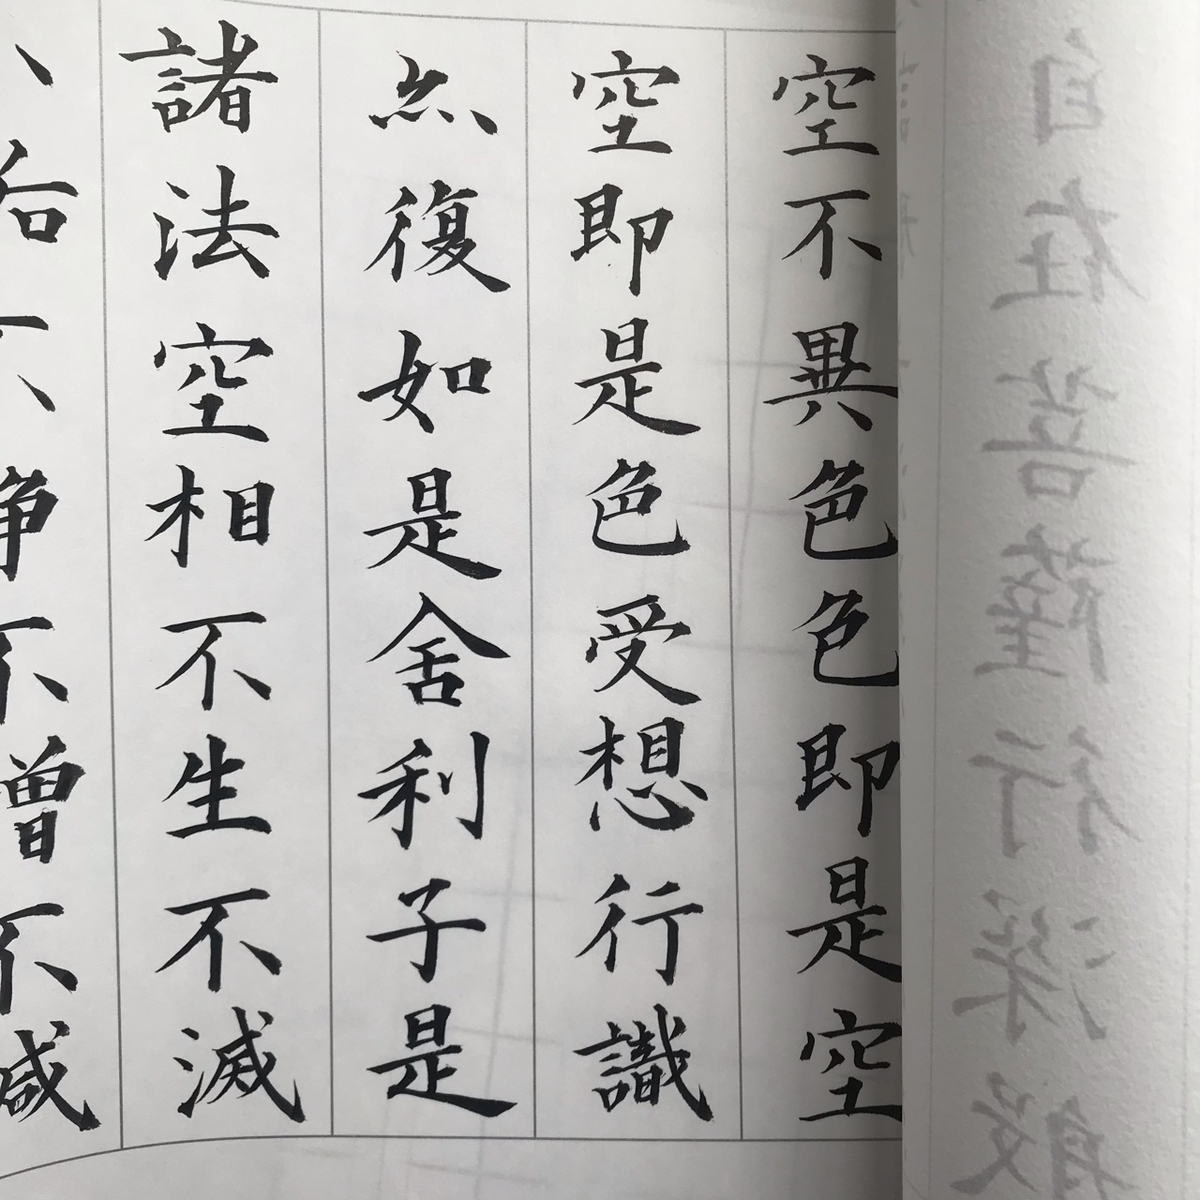 自在菩薩行深般
空不異色色即是空
空即是色受想行識
亦復如是舍利子是
諸法空相不生不滅
不垢不净不增不減